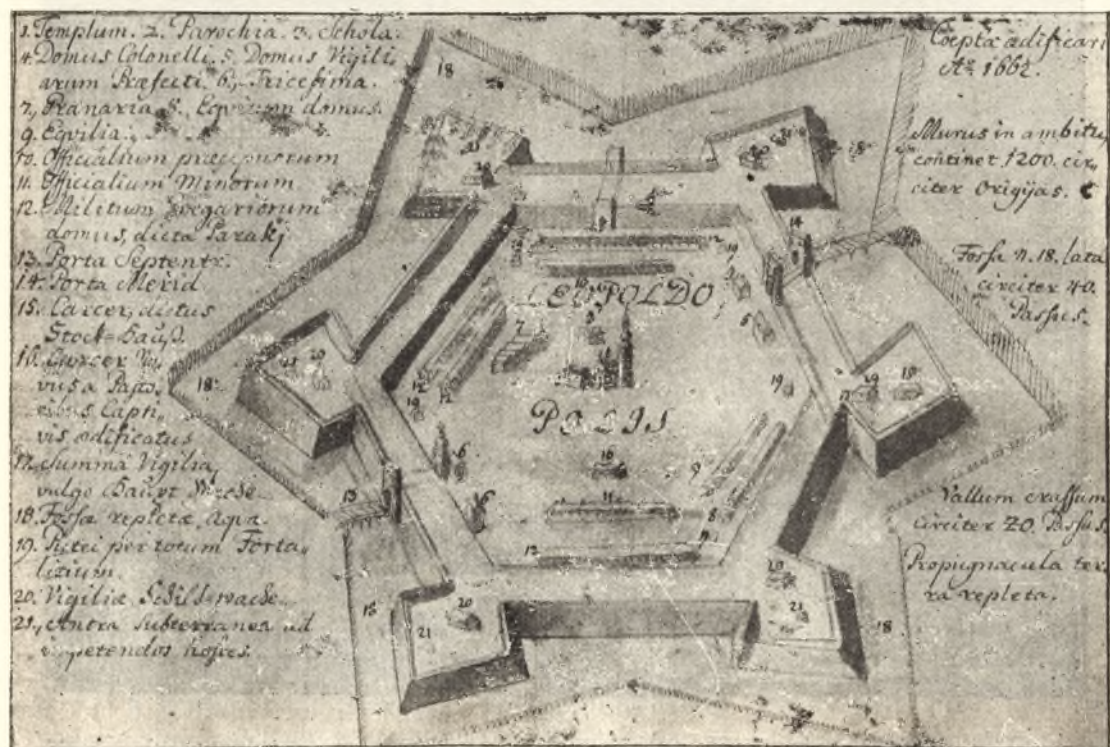 1. Templum. 2. Parochia. 3. Schola.
4. Domus Colonelli. 5. Domus Vigili,
arum Præfecti. 6. Tricesima.
7. Granaria. 8. domus.
9. Eqvilia.
10. Officialium præcipuorum
11. Officialium Minorum
12. Militum gregariorum
domus, dicta Parakj
13. Porta Septentr.
14. Porta Merid
15. Carcer, dictus
Stock=Hauß.
16. Carcer No,
vus a
Capti,
vis ædificatus
17. Summa Vigilia,
vulgo Haupt Wache.
18. Fossæ repletæ aqua.
19. Putei per totum Forta,
litium.
20. Vigiliæ Schild=wache.
21. Antra Subterranea ad
impetendos hostes.
Coepta ædificari
Aō. 1662.
Murus in ambitu,
continet 1200. cir,
citer Orgijas.
Fossa N. 18. lata
circiter 40.
Passus.
Vallum crassum
circiter 20. Passus.
Propugnacula ter,
ra repleta.
LEOPOLDO
POLIS